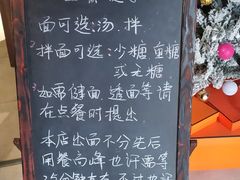 面可选:汤.拌
拌面可选:少糖.重糖
或无糖
如需健面.透面等请
在点餐时提出
本店出面不分先后
用餐向峰也许需等